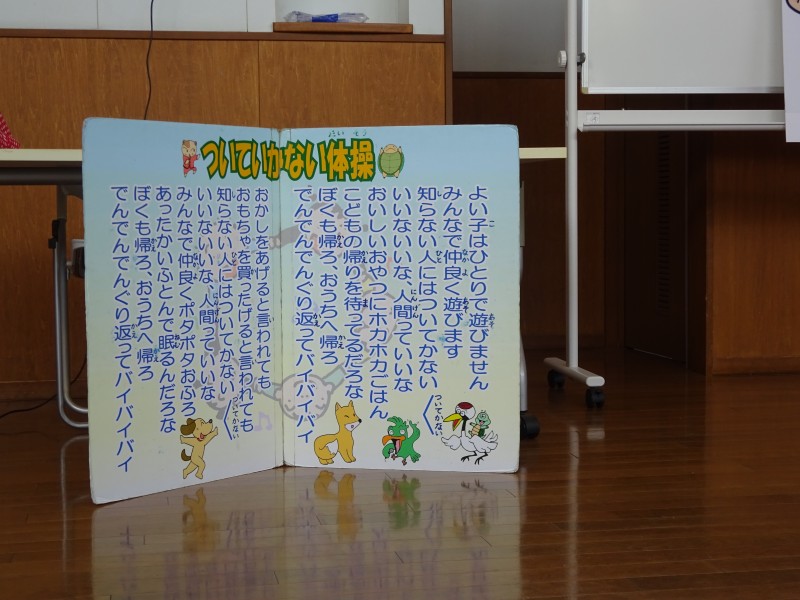 ついていかない体操
よい子はひとりで遊びません
みんなで仲良く遊びます
知らない人にはついてかない
ついてかない
いいないいな、人間っていいな
おいしいおやつにホカホカごはん
こどもの帰りを待ってるだろな
ぼくも帰ろ、おうちへ帰ろ
でんでんでんぐり返ってバイバイバイ
おかしをあげると言われても
おもちゃを買ったげると言われても
知らない人にはついてかない
ついてかない
いいないいな、人間っていいな
みんなで仲良くポタポタおふろ
あったかいふとんで眠るんだろな
ぼくも帰ろ、おうちへ帰ろ
でんでんでんぐり返ってバイバイバイ